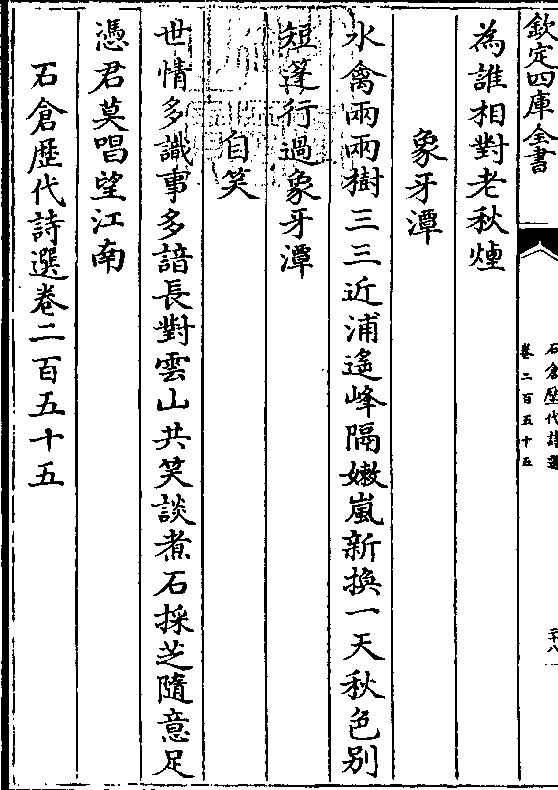 欽定四庫全書
石倉歷代詩選
卷二百五十五
為誰相對老秋煙
象牙潭
水禽兩兩樹三三近浦遙峰隔嫩嵐新換一天秋色别
短篷行過象牙潭
自笑
世情多識事多諳長對雲山共笑談煮石採芝隨意足
憑君莫唱望江南
石倉歷代詩選卷二百五十五